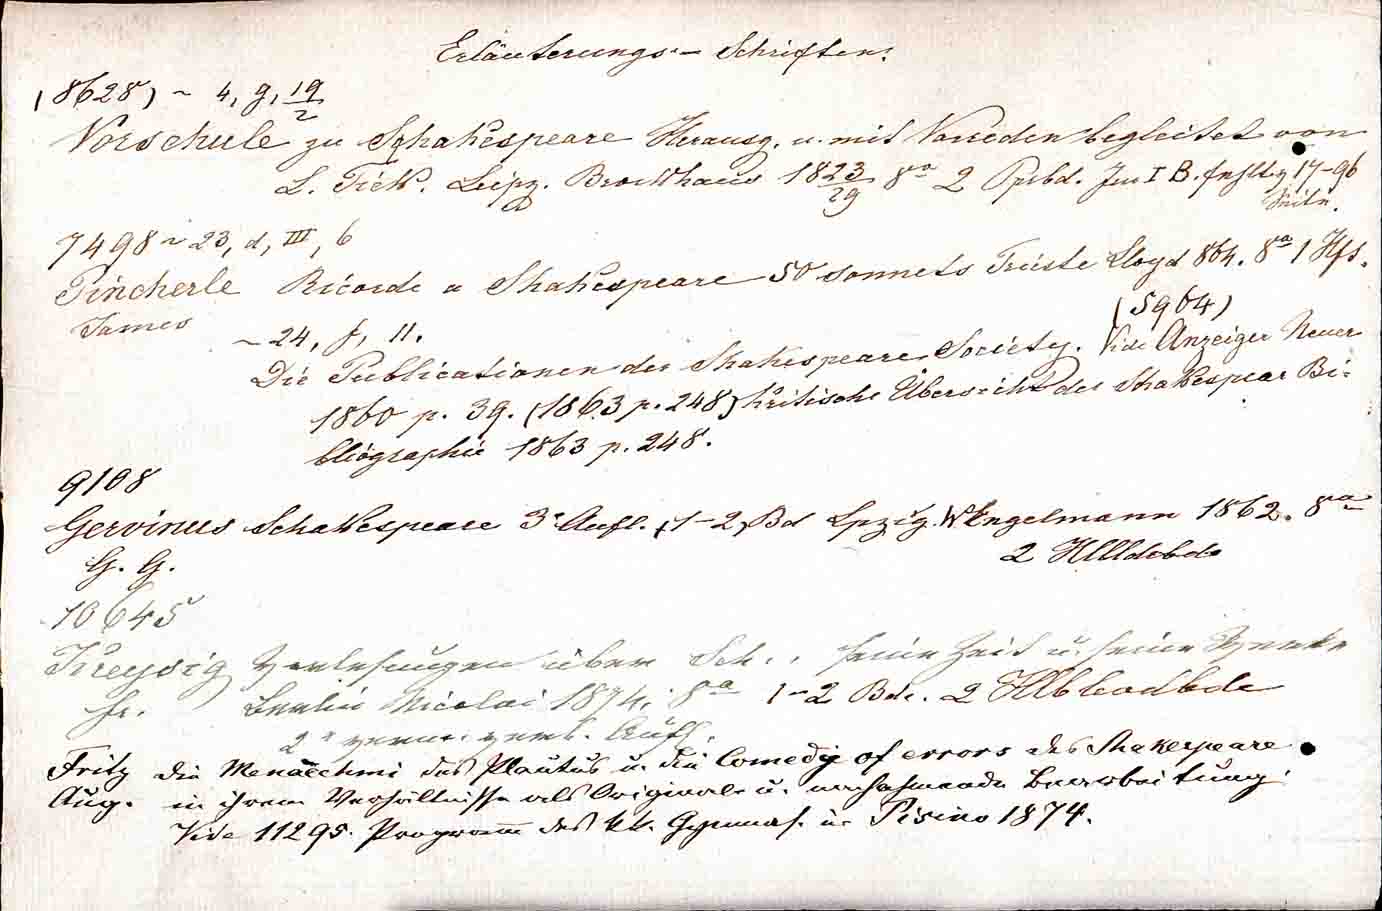 Erläuterungs-Schriften.
(8628) ~ 4, g, 19/2
Vorschule zu Schakespeare Herausg. u. mit Vorreden begleitet von
L. Tiek. Leipz. Brockhaus 1823/29 8º 2 Ppbd. Im I B. fehlt. 17-96
Seite.
7498 ~ 23, d, III, 6
Pincherle Ricorde a Shakespeare 50 sonnets Trieste Lloyd 864. 8º 1 Hft.
James
~ 24, f, 11.
(5964)
Die Publicationen der Shakespeare Society. Vide Anzeiger Neuer
1860 p. 39. (1863 p. 248) Kritische Übersicht der Shakespear Bi-
bliographie 1863 p. 248.
9108
Gervinus Schakespeare 3ᵉ Aufl. (1-2) Bd Lpzig. W Engelmann 1862. 8º
G. G. 2 Hlldbde
10645
Kreysig Vorlesungen über Sch., seine Zeit u. seine Werke
Fr. Berlin Nicolai 1874. 8º 1-2 Bde. 2
2ᵉ verm. verb. Aufl.
Fritz Die Menaechmi des Plautus u. die Comedy of errors des Shakespeare
Aug. in ihrem Verhältnisse als Original u. nachahmende Bearbeitung.
Vide 11295. Programm des kk. Gymnas. in Pisino 1874.